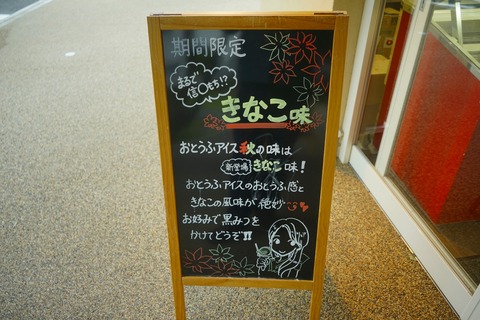 期間限定
まるで
信〇もち!?
きなこ味
おとうふアイス秋の味は
新登場 きなこ味!
おとうふアイスのおとうふ感と
きなこの風味が絶妙
お好みで黒みつを
かけてどうぞ!!